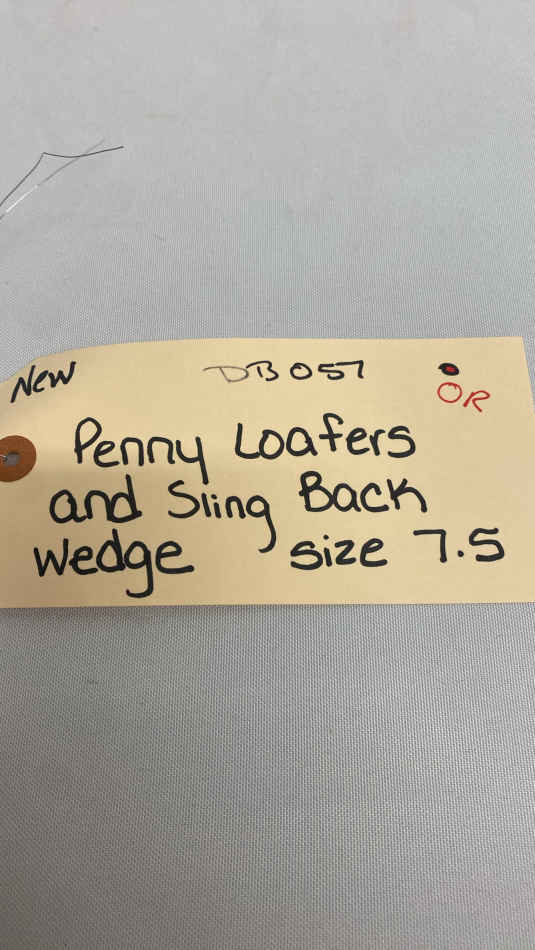 New DB057
OR
Penny Loafers
and Sling Back
Wedge size 7.5